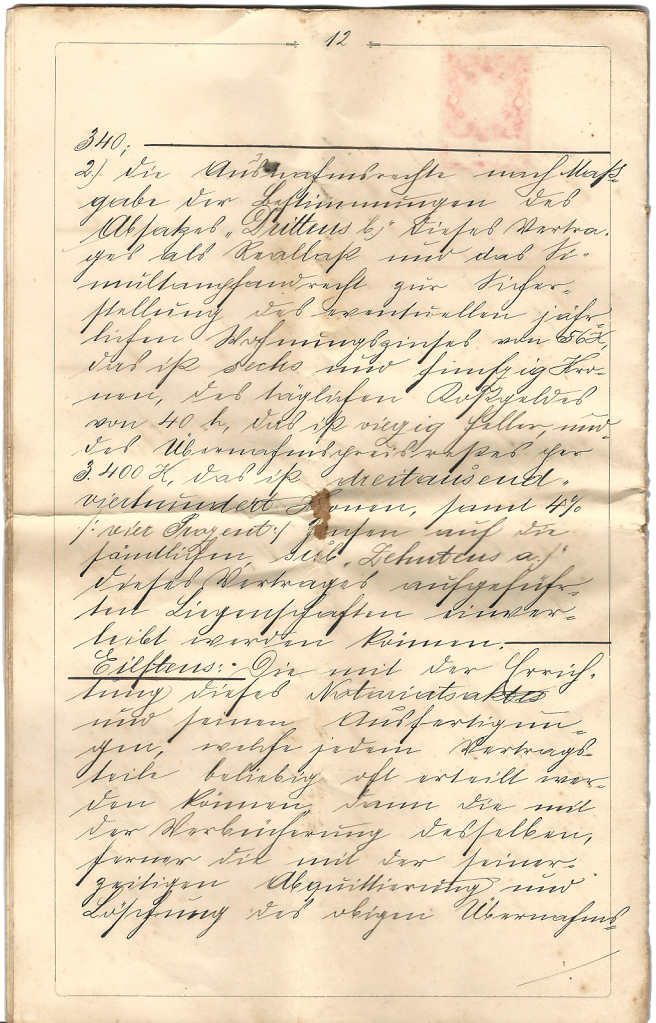 12
340;
2.) die Ausnahmsrechte nach Maß-
gabe der Bestimmungen des
Absatzes „Drittens b.)“ dieses Vertra-
ges als Reallast und das Si-
multanpfandrecht zur Sicher-
stellung des eventuellen jähr-
lichen Wohnungszinses von 56 K,
das ist sechs und fünfzig Kro-
nen, des täglichen Kostgeldes
von 40 h, das ist vierzig Heller, und
des Übernahmspreisrestes per
3.400 K, das ist dreitausend-
vierhundert Kronen, samt 4%
/: vier Prozent :/ Zinsen auf die
sämtlichen, sub „Zehntens a.)“
dieses Vertrages aufgeführ-
ten Liegenschaften einver-
leibt werden können.
Eilftens:- Die mit der Errich-
tung dieses Notariatsaktes
und seinen Ausfertigun-
gen, welche jedem Vertrags-
teile beliebig oft erteilt wer-
den können, dann die mit
der Verbücherung desselben,
ferner die mit der seiner-
zeitigen Abquittierung und
Löschung des obigen Übernahms-